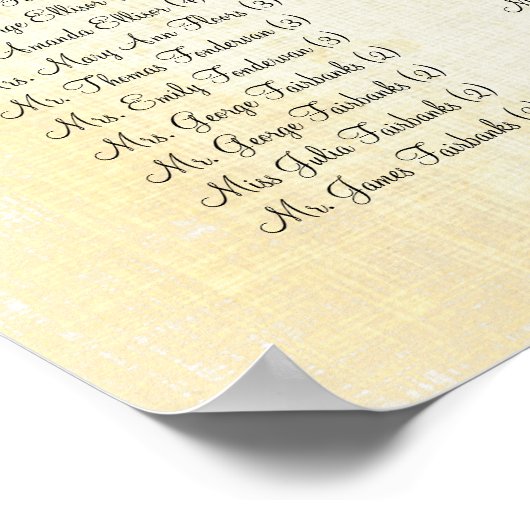 Ellison
Amanda Ellison
Mrs. Mary Ann Floors (3)
Mr. Thomas Fonderwan (3)
Mrs. Emily Fonderwan (3)
Mrs. George Fairbanks (2)
Mr. George Fairbanks (2)
Miss Julia Fairbanks (2)
Mr. James Fairbanks